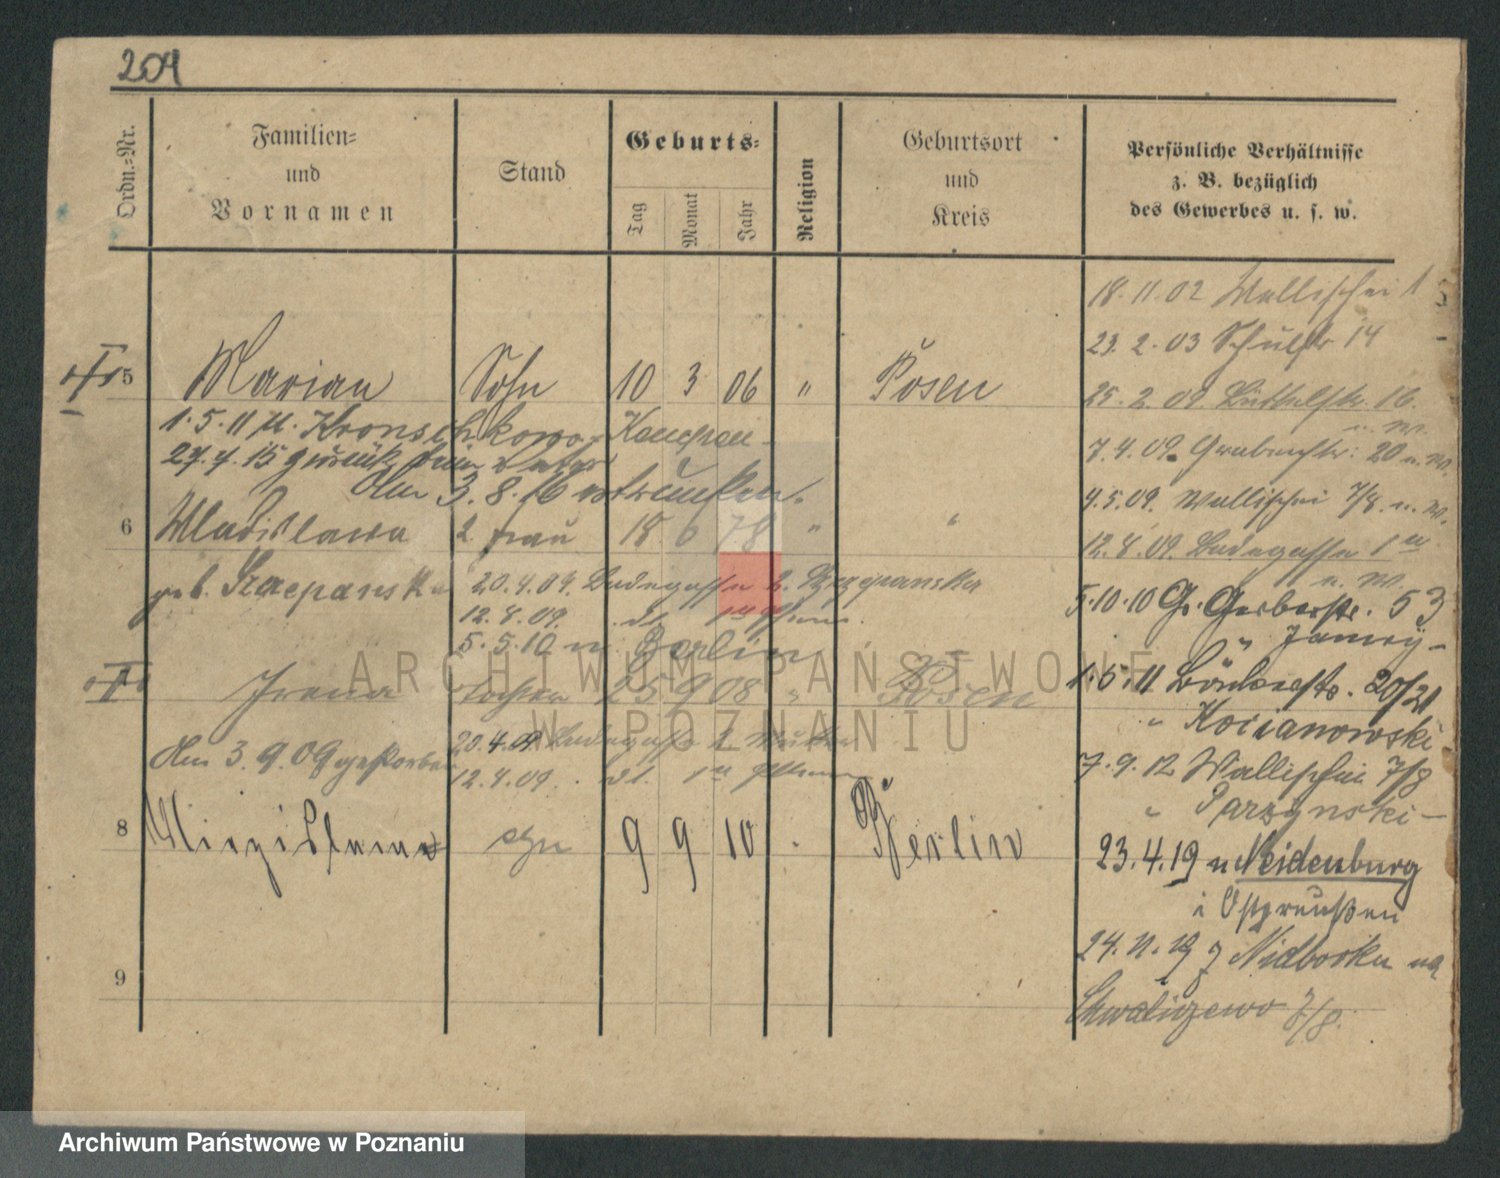 204
Ordn.=Nr.
Familien=
und
Vornamen
Stand
Geburts=
Tag
Monat
Jahr
Religion
Geburtsort
und
Kreis
Persönliche Verhältnisse
z. B. bezüglich
des Gewerbes u. s. w.
18.11.02 Wallischei 1
23.2.03 Schulstr 14
5 Marian Sohn 10 3 06 " Posen
25.2.09
1.5.11 Kronschkowo
7.4.09. 20 u. W.
27.4.15 zurück
Am 3.8.16 ertrunken.
4.5.09. Wallischei 7/8 u. W.
6 Wladislawa 2. Frau 18 6 78 " "
12.8.09. Badegasse 1
u. W.
geb. Szczepanska 20.4.09. Badegasse 2. Szczepanska
5.10.10 Gr. Gerberstr. 53
12.8.09. 1
" Jameg -
5.5.10 n Berlin
Irena Tochter 25 9 08 " Posen
1.5.11 20/21
" Kocianowski
20.4.09 Badegasse 2
Am 3.9.09 gestorben
12.4.09.
7.9.12 Wallischei 7/8
" Parzynski -
8 9 9 10 Berlin
23.4.19 n Neidenburg
i Ostpreußen
24.11.19 z Nidborka na
9
Chwaliszewo 7/8.
ARCHIWUM PAŃSTWOWE
W POZNANIU
Archiwum Państwowe w Poznaniu